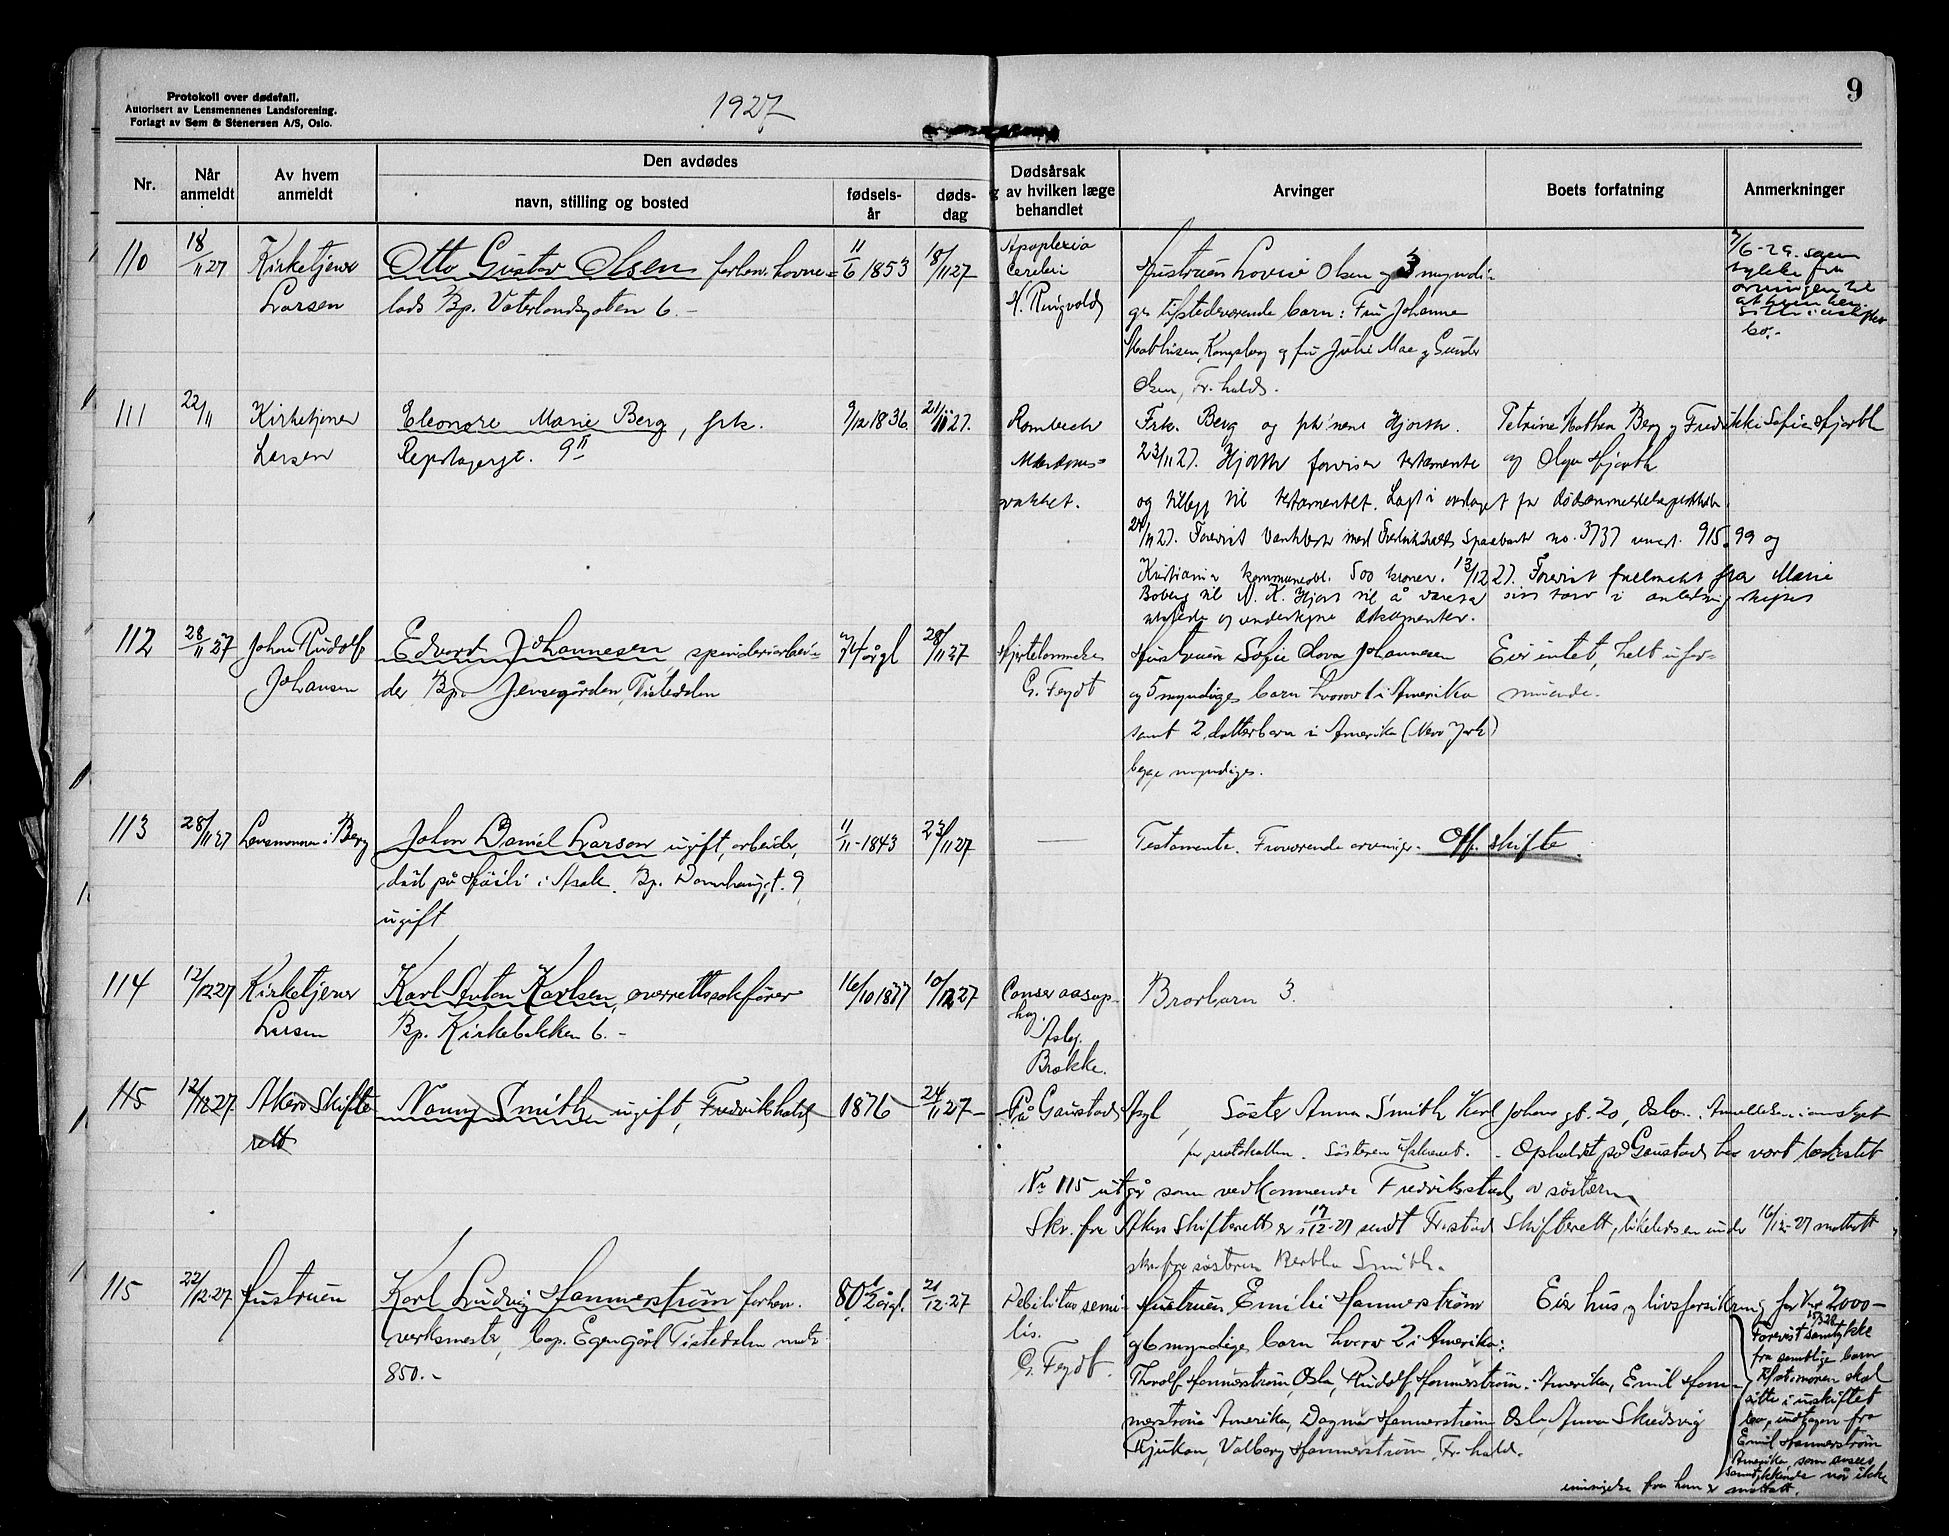 Protokoll over dødsfall.
Autorisert av Lensmennenes Landsforening.
Forlagt av Sem & Stenersen A/S, Oslo.
1927
9
Nr.
Når anmeldt
Av hvem anmeldt
Den avdødes
navn, stilling og bosted
fødsels-år
døds-dag
Dødsårsak
og av hvilken læge
behandlet
Arvinger
Boets forfatning
Anmerkninger
110
18/11 27
Kirketjener
Larsen
Otto Gustav Olsen, forhen.
Bp. Vaterlandsgaten 6.-
11/6 1853
18/11 27
Apoplexia
cerebri
Hustruen Lovise Olsen og 3 myndi-
ge tilstedeværende barn: Fru Johanne
Mathisen, Kongsberg og fru Julie Moe og Gunder
Olsen, Fr.hald.
7/6-29.
bo.-
111
22/11
Kirketjener
Larsen
Eleonore Marie Berg, frk.
Repslagergt. 9 II
9/12 1836
21/11 27.
Rombeck
vakket.
Frk. Berg og frk'nene Hjorth
23/11 27. Hjorth foreviser testamente
og tillegg til testamentet. Lagt i omslaget for dødsanmeldelsesprotokollen
24/11 27. Forevist bankbok med Fredrikshalds Sparebank no. 3737 901 915.99 og
Kristiania kommuneobl. 500 kroner. 13/12 27. Forevist fullmakt fra Marie
Boberg til N. K. Hjort til å vareta sitt tarv i anledning skiftet
utstede og undertegne dokumenter.
Petrine Mathea Berg og Fredrikke Sofie Hjorth
og Olga Hjorth
112
28/11 27
Johan Rudolf
Johansen
Edvard Johannesen, spinderiarbei-
der, Bp. Jensegården, Tistedalen
74 årgl
28/11 27
Hjertelammelse
G. Feydt
Hustruen Sofie Lova Johannesen
og 5 myndige barn hvorav 1 i Amerika
samt 2 datterbarn i Amerika (New York)
begge myndige.
Eier intet, helt ufor-
muende.
113
28/11 27
Lensmannen i Berg
John Daniel Larsen ugift, arbeider,
død på i Asak. Bp. 9
ugift
11/11-1843
23/11 27
Testamente. Fraværende arvinger. Off. skifte.
114
12/12 27
Kirketjener
Larsen
Karl Anton Karlsen, overrettssakfører
Bp. Kirkebakken 6.-
16/10 1877
10/12 27
Cancer oesop-
hag.
Brække.
Brorbarn 3.
115
12/12 27
Akers Skifte
rett
Nanny Smith ugift, Fredrikshald
1876
24/11 27
På Gaustad Asyl, Søster Anna Smith Karl Johans gt. 20, Oslo. Anmeldelsen i omslaget
for protokollen. Søsteren tilskrevet. - Opholdet på Gaustad har vært bekostet
Nr. 115 utgår som vedkommende Fredrikstad, av søsteren
Skr. fra Akers Skifterett er 17/12-27 sendt Fr.stad Skifterett, likeledes en under 16/12-27 mottatt
skr. fra søsteren Bertha Smith.
115
22/12 27
Hustruen
Karl Ludvig Hammerstrøm forhen.
verksmester, bop. Egengård Tistedalen
850.-
80 1/2 årgl.
21/12-27
Debilitas seni-
lis.
G. Feydt.
Hustruen Emilie Hammerstrøm
og 6 myndige barn hvorav 2 i Amerika:
Thorolf Hammerstrøm, Oslo, Rudolf Hammerstrøm, Amerika, Emil Ham-
merstrøm Amerika, Dagmar Hammerstrøm Oslo, Anna Skredsvig
Rjukan, Valborg Hammerstrøm, Fr.hald.
Eier hus og livsforsikring for kr 2000-
Forevist samtykke
fra samtlige barn
at moren skal
sitte i uskiftet
bo, undtagen fra
Emil Hammerstrøm
Amerika, som ansees
samtykkende når ikke
innsigelse fra ham er mottatt.